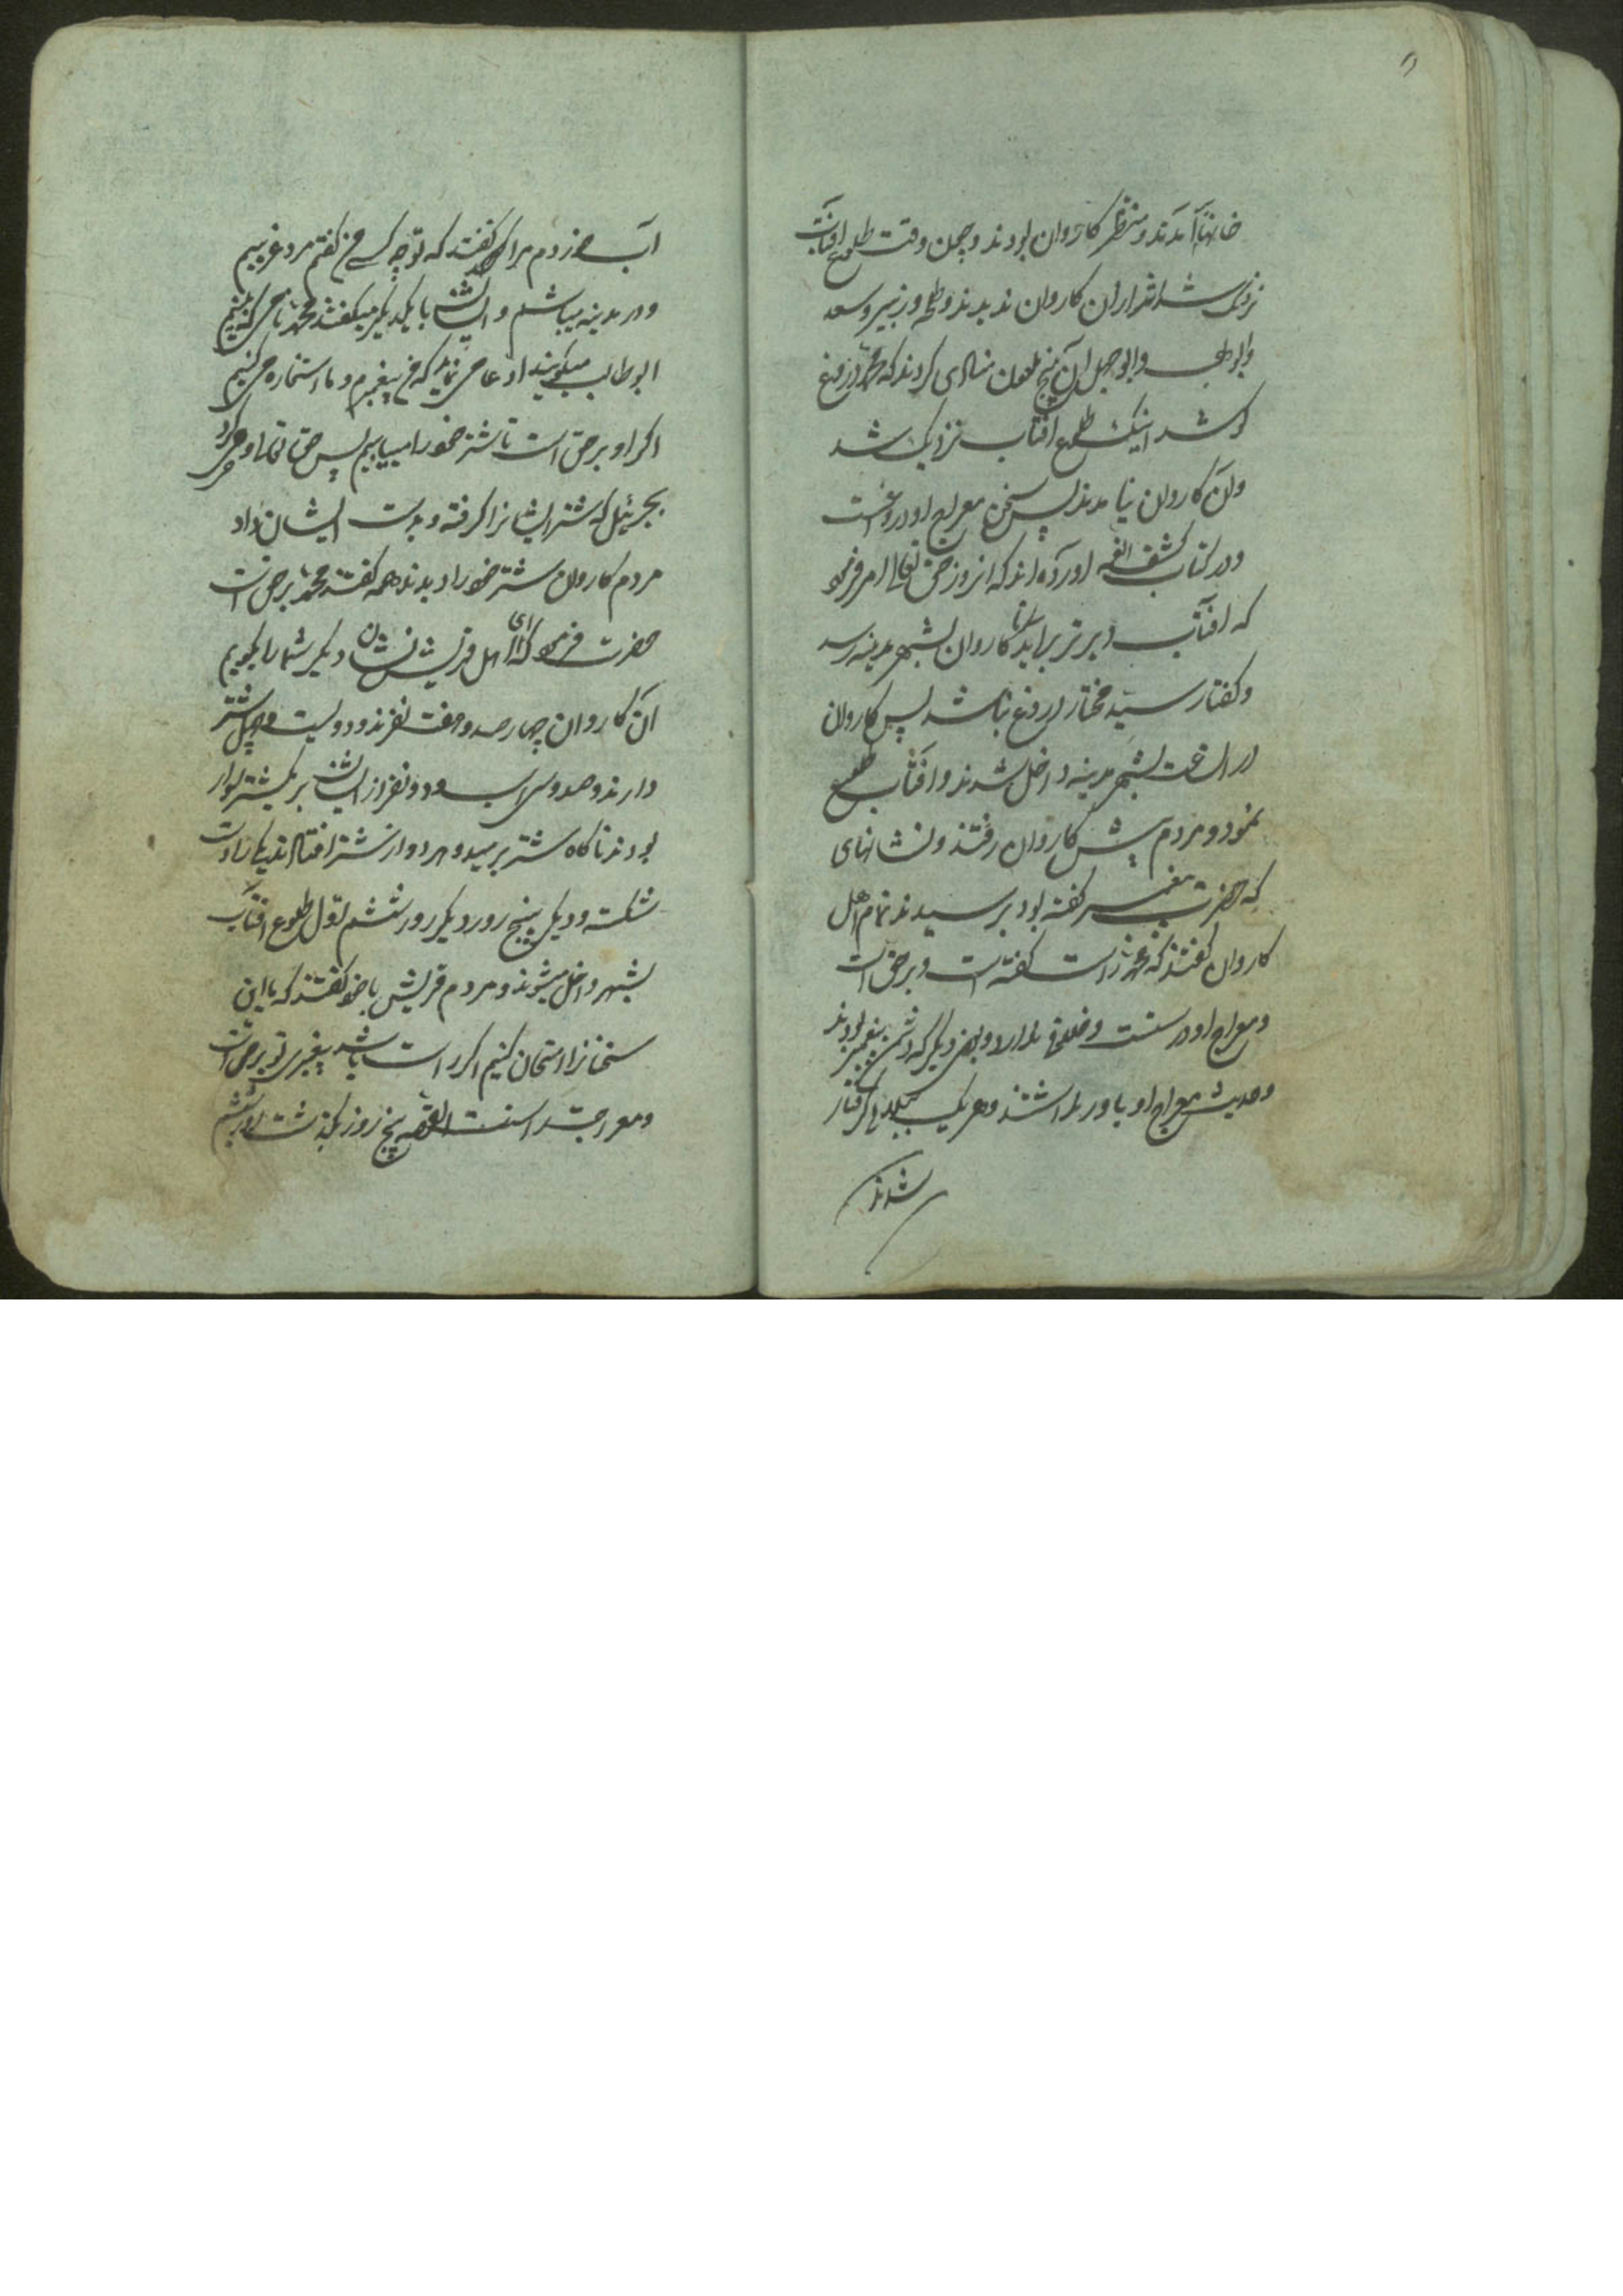 خانها آمدند و منتظر کاروان بودند و چون وقت طلوع افتاب
نزدیک شد اثر از ان کاروان ندیدند و طلحه و زبیر و سعد
و ابولهب و ابوجهل ان پنج ملعون منادی کردند که محمد دروغ
کو شد اینک طلوع افتاب نزدیک شد
وان کاروان نیامدند پس سخن معراج او دروغست
ودر کتاب کشف الغمه اورده اند که انروز حق تعالی امر فرمود
که افتاب دیرتر براید تا کاروان بشهر مدینه رسد
وکفتار سید مختار دروغ نباشد پس کاروان
در ساعت بشهر مدینه داخل شدند و افتاب طلوع
نمود و مردم پیش کاروان رفتند و نشانهای
که حضرت پیغمبر کفته بود پرسیدند تمام اهل
کاروان کفتند که محمد راست کفته است و برحق است
ومعراج او درستست و خلافی ندارد و بعضی دیکر که دشمن پیغمبر بودند
وحدیث معراج او باور نداشتند و هر یک ببلای کرفتار
شدند
اب می زدم مرا کفتند که تو چه کسی من کفتم مرد غریبم
ودر مدینه میباشم و ایشان با یکدیکر میکفتند محمد نامی که یتیم
ابوطالب میکویند ادعا می نماید که من پیغمبرم و ما استخاره می کنیم
اکر او برحق است تا شتر خود را بیابیم پس حق تعالی وحی کرد
بجبرئیل که شتر ایشانرا کرفته و بدست ایشان داد
مردم کاروان شتر خود را دیدند همه کفتند محمد برحق است
حضرت فرمود که ای اهل قریش نشان دیکر شما را بکویم
ان کاروان چهار صد و هفت نفرند و دویست و چهل شتر
دارند و صد و سی اسب و دو نفر از ایشان بر یکشتر سوار
بودند ناکاه شتر برمید و هر دو از شتر افتادند یکی را دست
شکسته و دیکر پنج روز دیکر روز ششم اول طلوع افتاب
بشهر داخل میشوند و مردم قریش با خود کفتند که ما این
سخنانرا امتحان کنیم اکر راست باشد پیغمبری تو برحق است
ومعراجت راستست القصه پنج روز بکذشت روز ششم